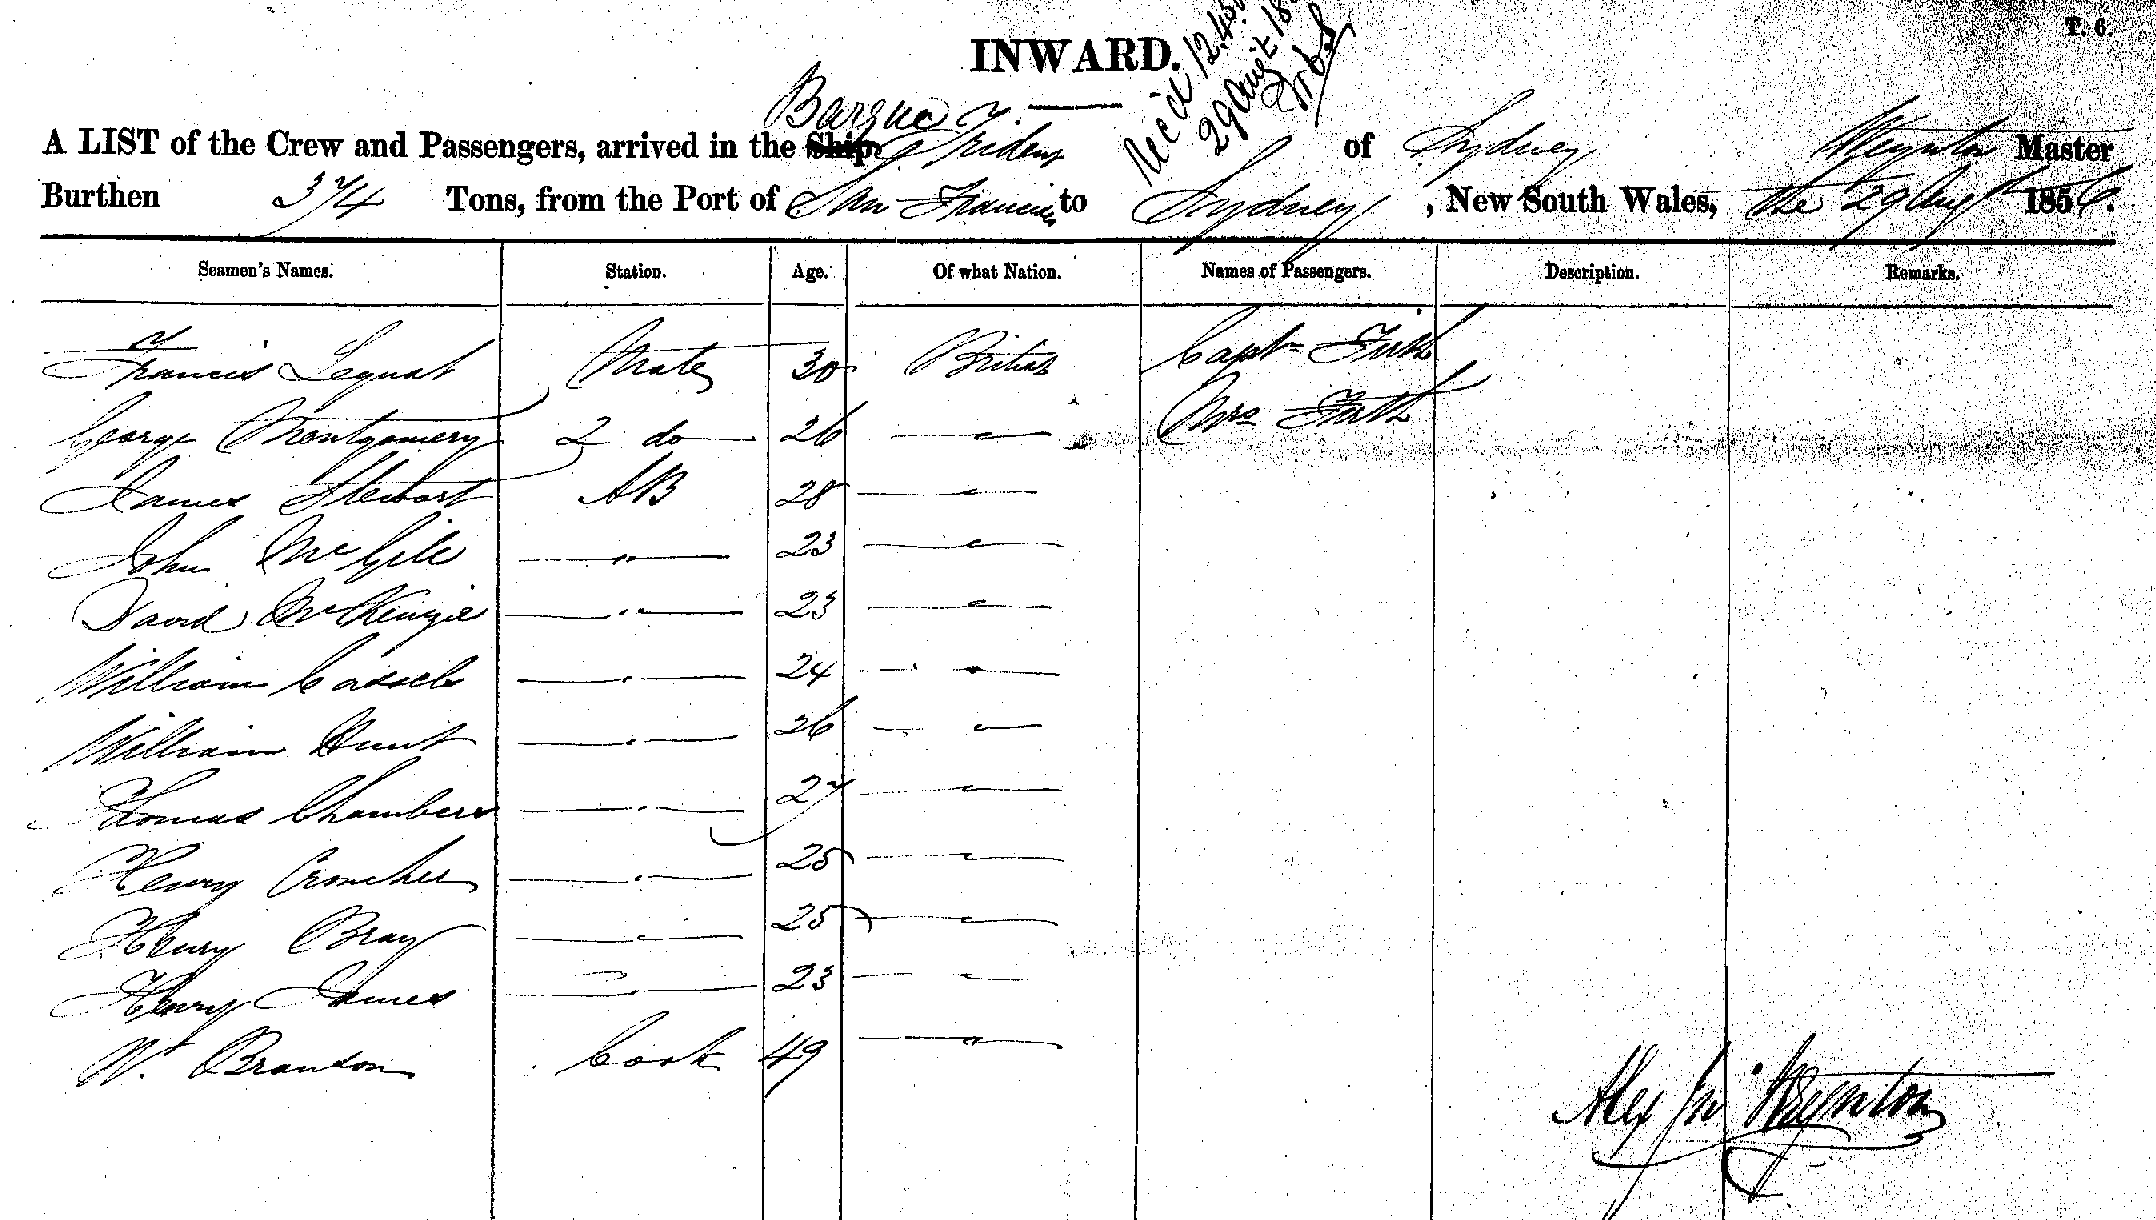 T. 6.
INWARD.
Rec'd 12.45
29 Augt 18
Barque
A LIST of the Crew and Passengers, arrived in the Ship Trident of Sydney Weynton Master
Burthen 374 Tons, from the Port of San Francisco to Sydney, New South Wales, the 29 Augt 1856.
Seamen's Names. Station. Age. Of what Nation. Names of Passengers. Description. Remarks.
Francis Leguat Mate 30 British Capt Firth
George Montgomery 2 do 26 " Mrs Firth
James Stewart AB 28 "
John McGile " 23 "
David McKenzie " 23 "
William Cassels " 24 "
William Hunt " 26 "
Thomas Chambers " 27 "
Henry Croucher " 25 "
Henry Bray " 25 "
Henry James " 23 "
W. Branson Cook 49 "
Alex Weynton